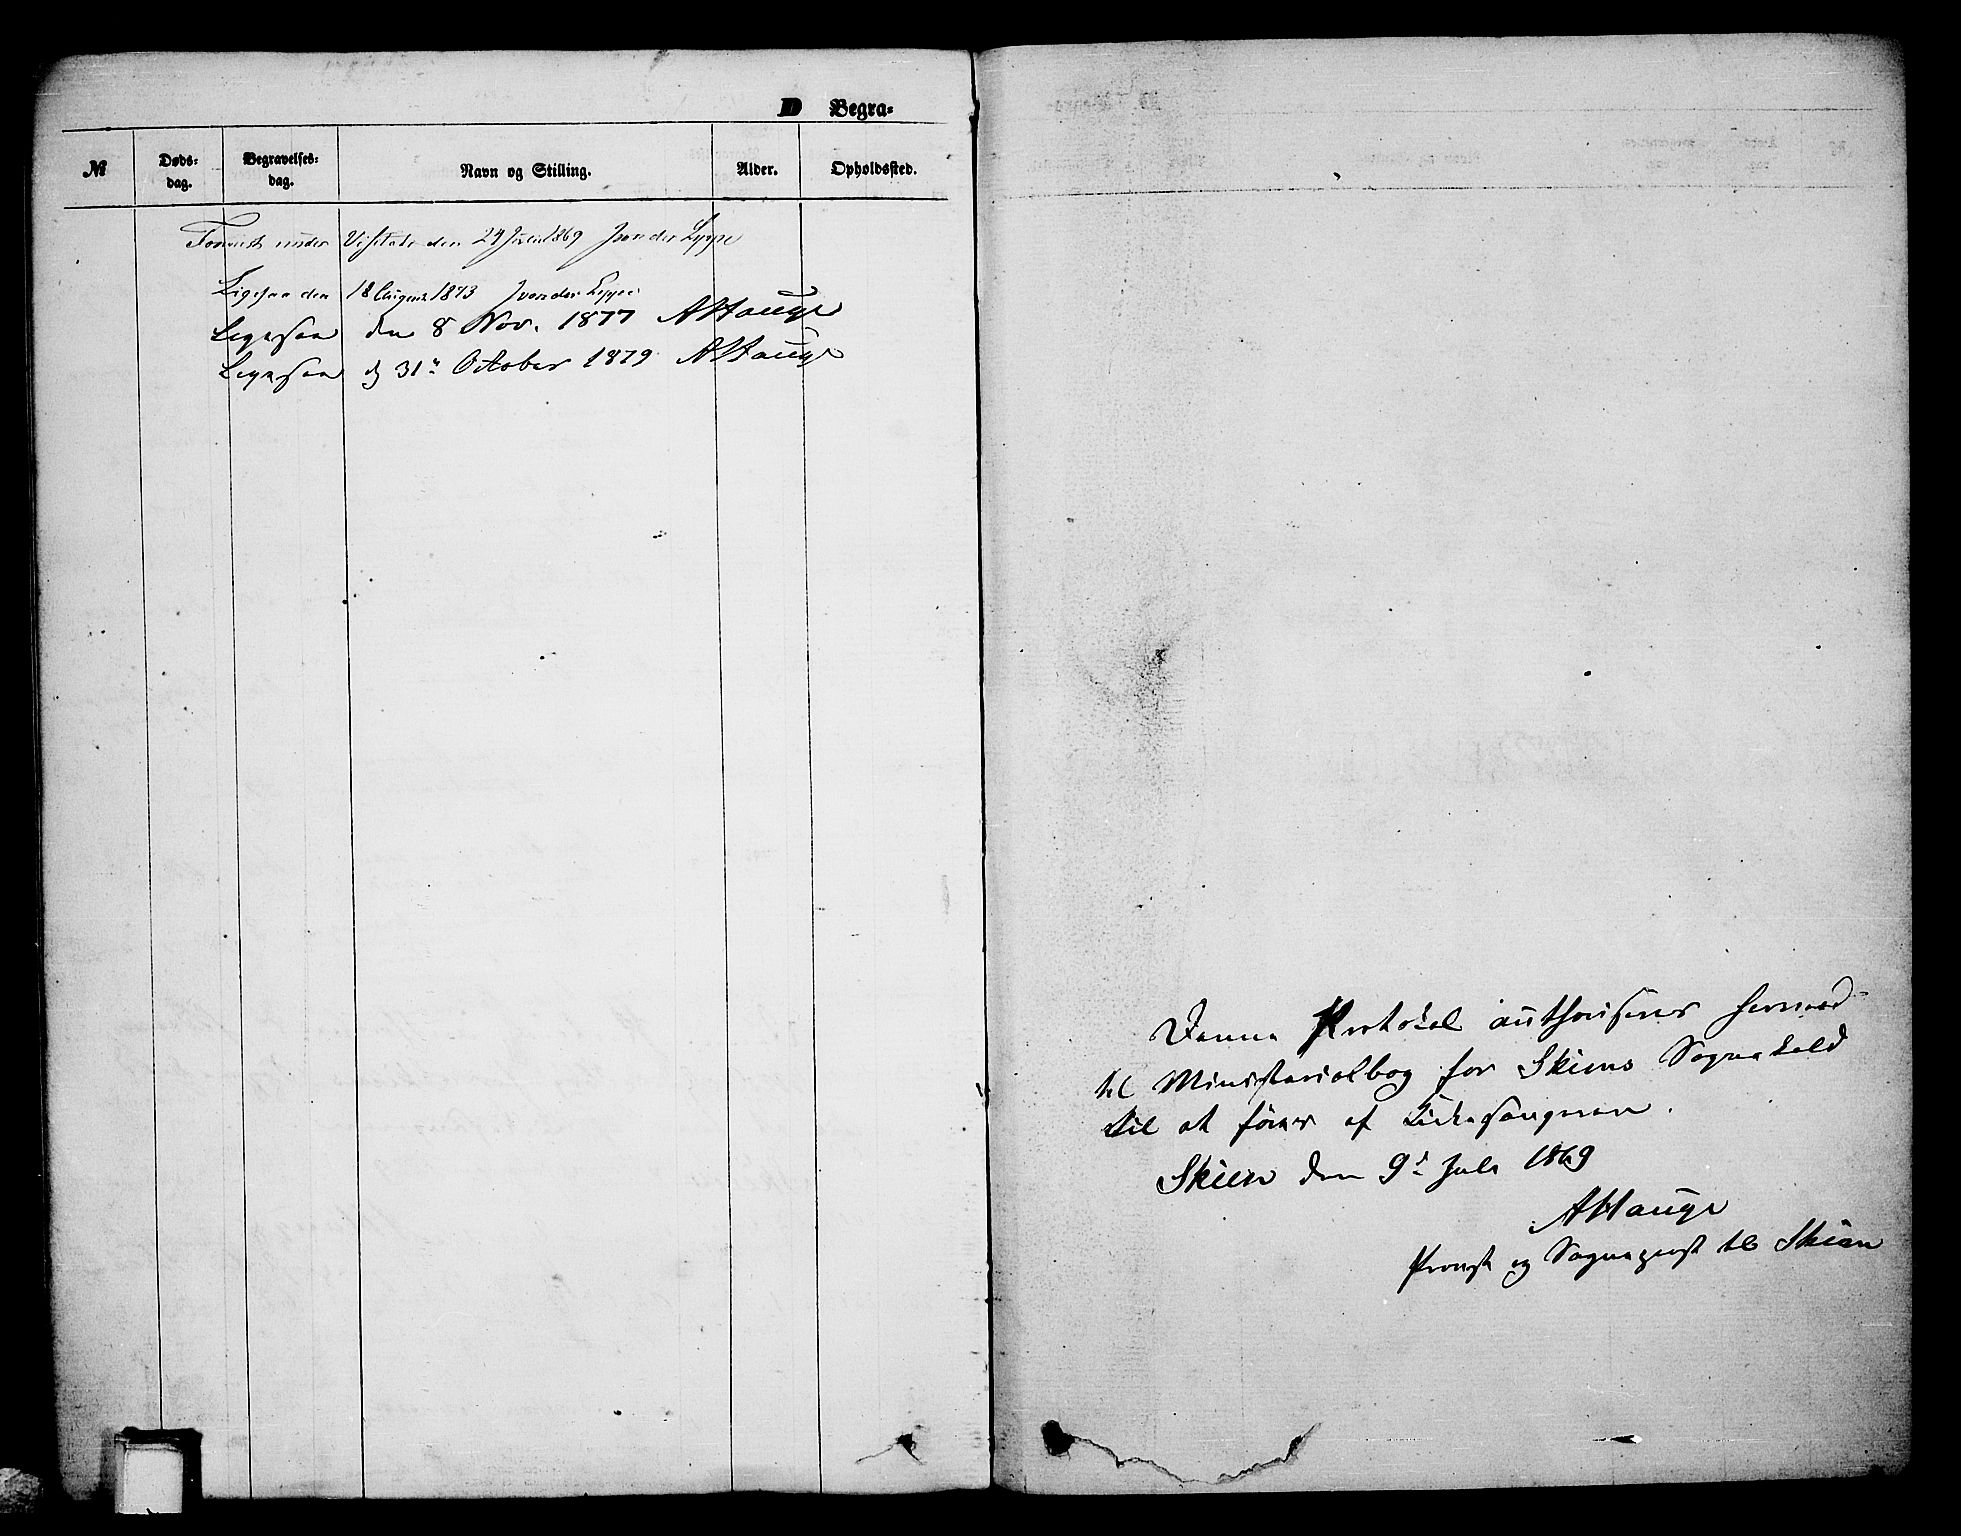 D Begra-
№
Døds-
dag.
Begravelses-
dag.
Navn og Stilling.
Alder.
Opholdssted.
Forevist under Visitats den 24 Juli 1869 J von der Lippe
Ligesaa den 18 August 1873 J von der Lippe
Ligesaa den 8 Nov. 1877 AHauge
Ligesaa d 31te October 1879 AHauge
Denne Protokol authoriseres hermed
til Ministerialbog for Skiens Sognekald
til at føres af Kirkesangeren.
Skien den 9de Juli 1869
AHauge
Provst og Sognepræst til Skien